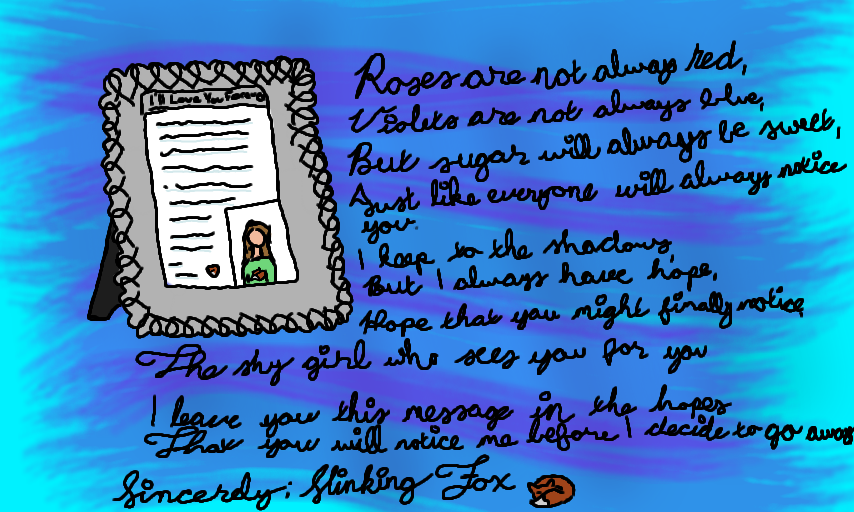 I'll Love You Forever
Roses are not always red,
Violets are not always blue,
But sugar will always be sweet,
Just like everyone will always notice
you.
I keep to the shadows,
But I always have hope,
Hope that you might finally notice
The shy girl who sees you for you
I leave you this message in the hopes
That you will notice me before I decide to go away
Sincerely; Slinking Fox